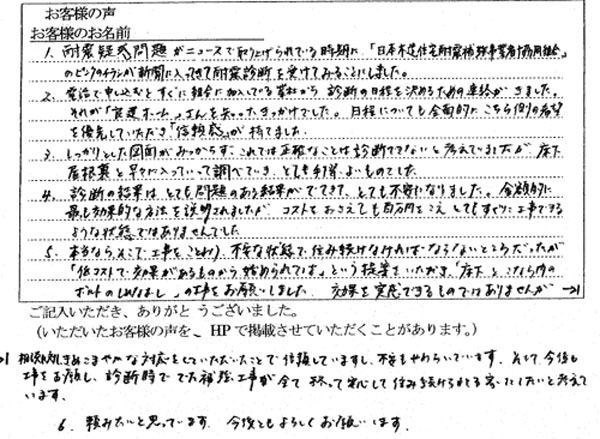 お客様の声
お客様のお名前
1. 耐震疑惑問題がニュースで取り上げられている時期に、「日本木造住宅耐震補強事業者協同組合」
のピンクのチラシが新聞に入ってきて耐震診断を受けてみることにしました。
2. 電話で申し込むとすぐに組合に加入している業社から診断の日程を決めるための連絡がきました。
それが「ホーム」さんを知ったきっかけでした。日程についても全面的にこちら側の希望
を優先していただき「信頼感」が持てました。
3. しっかりとした図面がみつからず、これでは正確なことは診断できないと考えていましたが、床下
屋根裏と入っていって調べていき、とても手際よいものでした。
4. 診断の結果は、とても問題のある結果がでてきて、とても不安になりました。金額的に
最も効果的な方法を説明されましたが、コストをおさえても百万円をこえ、とてもすぐに工事できる
ような状態ではありませんでした
5. 本当ならそこで工事をことわり、不安な状態で住み続けなければならないところだったが
「低コストで効果があるものから始められては」という提案をいただき、「床下
ボルトのしめなおし」の工事をお願いしました。効果を実感できるものではありませんが →1
ご記入いただき、ありがとうございました。
（いただいたお客様の声を、HPで掲載させていただくことがあります。）
→1 相談にきめこまやかな対応をしていただいたことで信頼していますし、不安もやわらいでいます。そして今後も
工事をお願いし、診断時にでた補強工事が全て終って安心して住み続けられる家にしたいと考えて
います。
6. 頼みたいと思っています。今後ともよろしくお願いします。